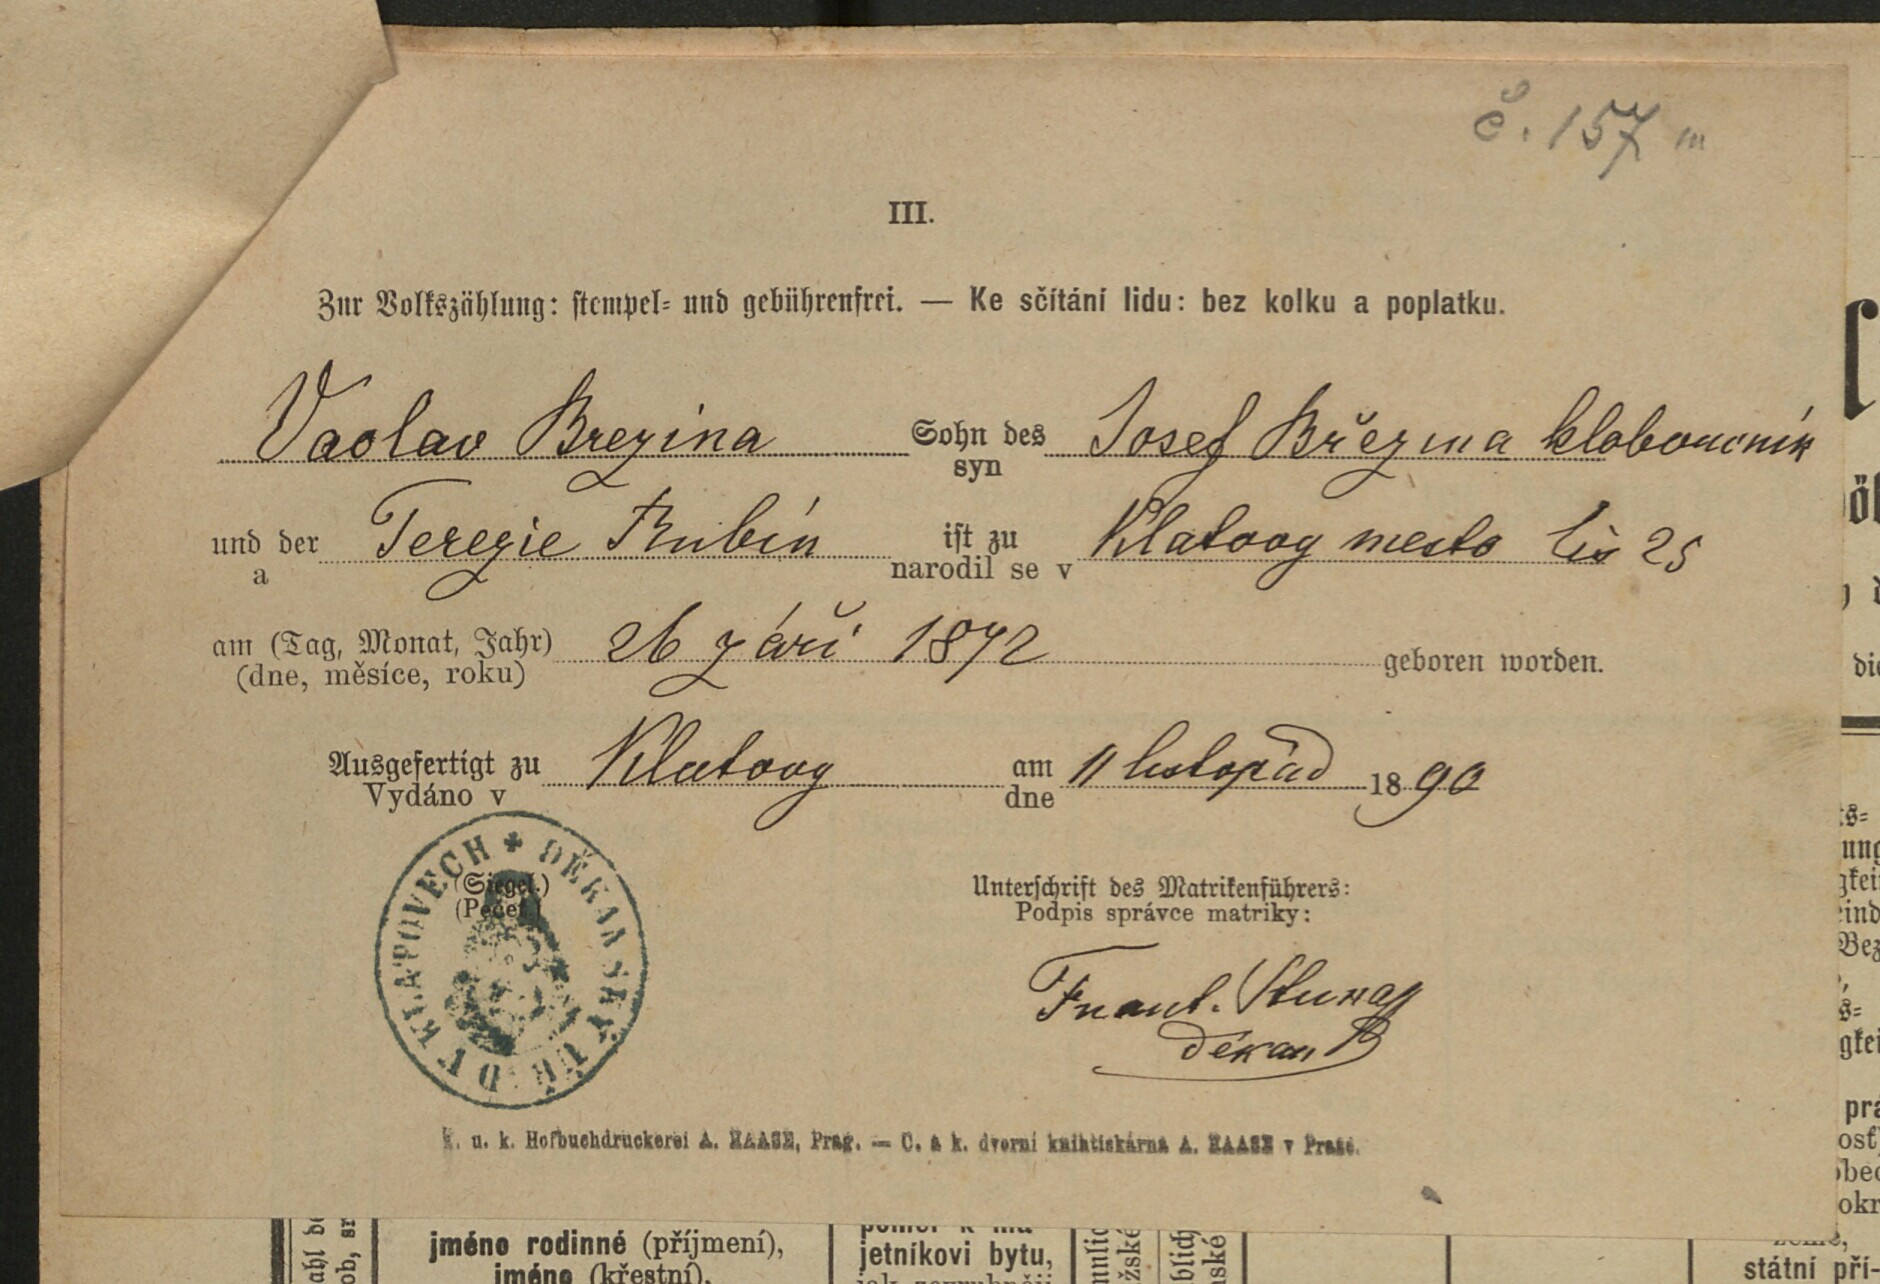 č. 157 m
III.
Zur Volkszählung: stempel- und gebührenfrei. — Ke sčítání lidu: bez kolku a poplatku.
Vaclav Brezina Sohn des Josef Březina kloboucnik
syn
und der Terezie Rubin ist zu Klatovy mesto čis 25
a narodil se v
am (Tag, Monat, Jahr) 26 září 1872 geboren worden.
(dne, měsíce, roku)
Ausgefertigt zu Klatovy am 11 listopad 1890
Vydáno v dne
DĚKANSKÝ ÚŘAD V KLATOVECH
(Siegel.)
(Pečeť.)
Unterschrift des Matrikenführers:
Podpis správce matriky:
Frant.
děkan
K. u. k. Hofbuchdruckerei A. HAASE, Prag. — C. a k. dvorní knihtiskárna A. HAASE v Praze.
jméno rodinné (příjmení),
jméno (křestní),
poměr k ma-
jetníkovi bytu,
státní pří-